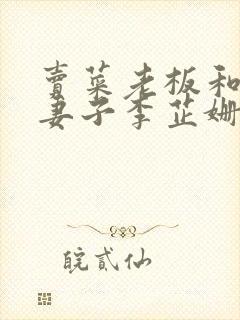 賣菜老板和
妻子李芷姍
皖貳仙